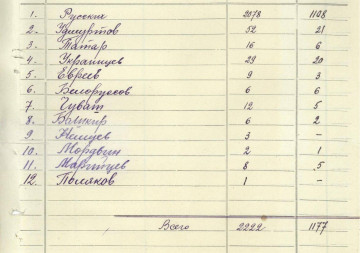 1. Русские 2078 1108
2. Удмуртов 52 21
3. Татар 16 6
4. Украинцев 29 20
5. Евреев 9 3
6. Белоруссов 6 6
7. Чуваш 12 5
8. Башкир 6 2
9. Немцев 3 -
10. Мордвин 2 1
11. Марийцев 8 5
12. Поляков 1 -
Всего 2222 1177